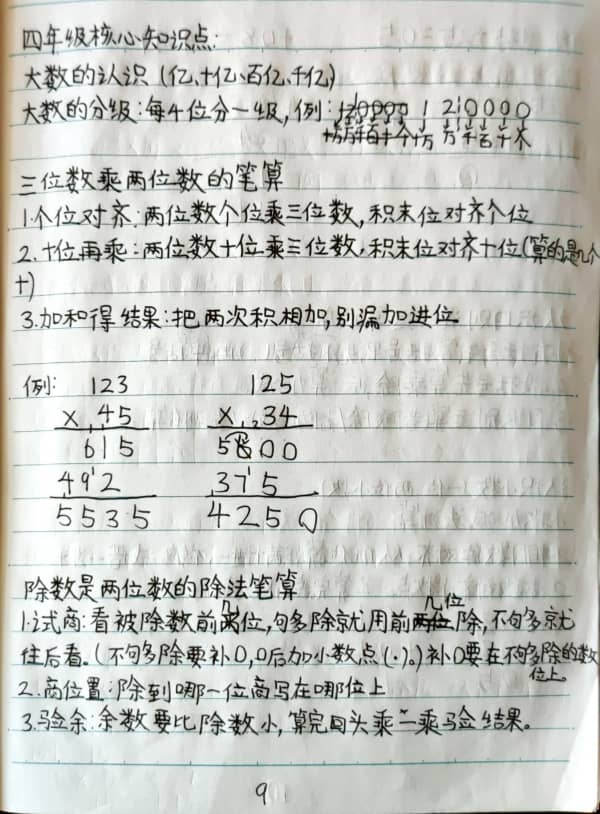 四年级核心知识点:
大数的认识(亿、十亿、百亿、千亿)
大数的分级:每4位分一级,例:120000 1 210000
十万 万 千 百 十 个 十万 万 千 百 十 个
三位数乘两位数的笔算
1.个位对齐:两位数个位乘三位数,积末位对齐个位
2.十位再乘:两位数十位乘三位数,积末位对齐十位(算的是几个
十)
3.加和得结果:把两次积相加,别漏加进位
例: 123 125
×45 ×34
615 500
492 375
5535 4250
除数是两位数的除法笔算
1.试商:看被除数前几位,够除就用前几位除,不够多就
往后看。(不够多除要补0,0后加小数点(·)。)补0要在不够多除的数
位上。
2.商位置:除到哪一位商写在哪位上
3.验余:余数要比除数小,算完回头乘一乘验结果。
9